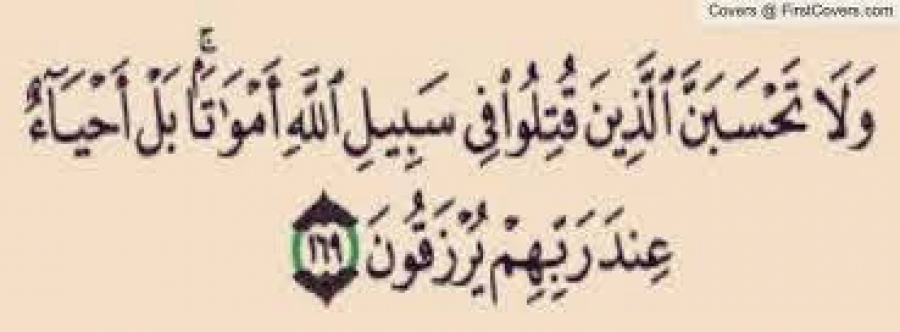 Covers @ FirstCovers.com
وَلَا تَحْسَبَنَّ ٱلَّذِينَ قُتِلُوا۟ فِى سَبِيلِ ٱللَّهِ أَمْوَٰتًۢا ۚ بَلْ أَحْيَآءٌ
عِندَ رَبِّهِمْ يُرْزَقُونَ ١٦٩